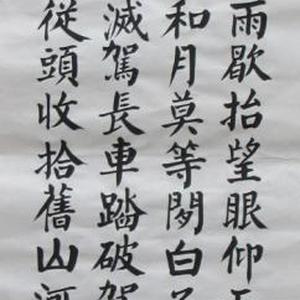 雨歇抬望眼仰
和月莫等閑白
滅駕長車踏破賀
從頭收拾舊山河